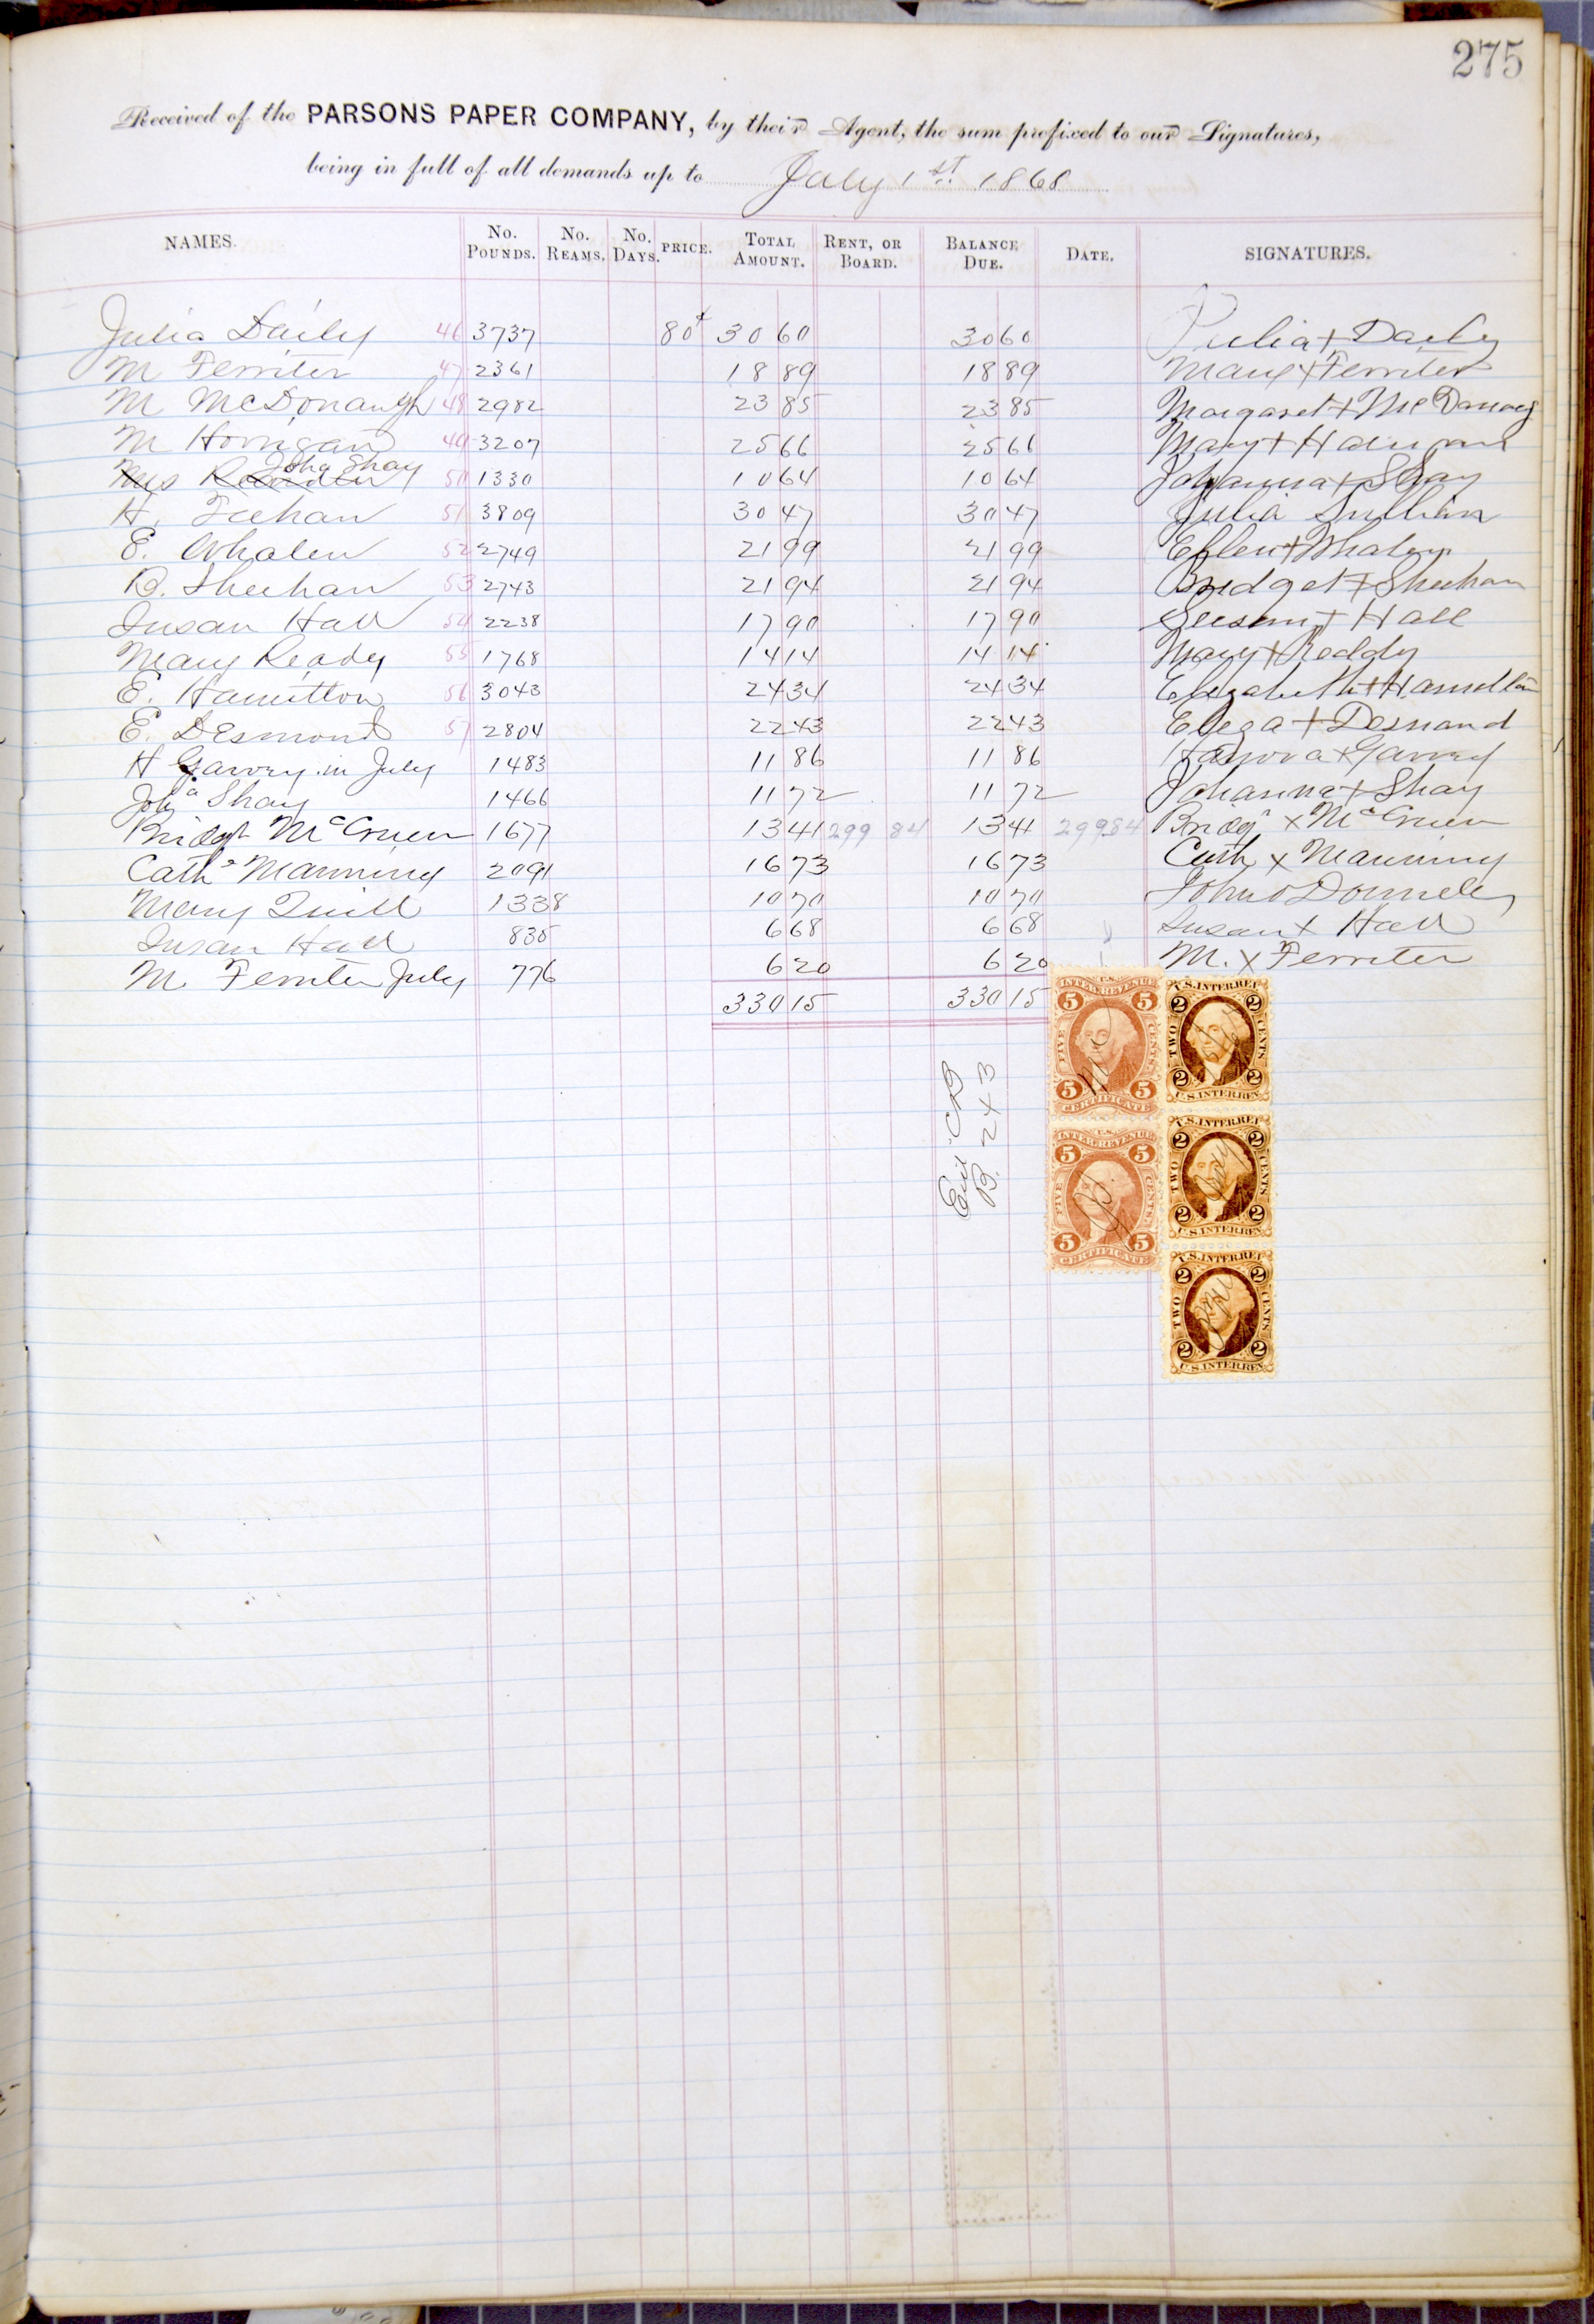 275
Received of the PARSONS PAPER COMPANY, by their Agent, the sum prefixed to our Signatures,
being in full of all demands up to July 1st 1868
NAMES. No. Pounds. No. Reams. No. Days. PRICE. Total Amount. Rent, or Board. Balance Due. Date. SIGNATURES.
Julia Daily 46 3737 80¢ 30 60 30 60 Julia + Daily
M Ferriter 47 2361 18 89 18 89 Mary + Ferriter
M McDonaugh 48 2982 23 85 23 85 Margaret + Mc
M Horrigan 49 3207 25 66 25 66 Mary +
Joha Shay
Mrs 50 1330 10 64 10 64 Johanna + Shay
H. Feehan 51 3809 30 47 30 47 Julia Sullivan
E. Whalen 52 2749 21 99 21 99 Ellen + Whalen
B. Sheehan 53 2743 21 94 21 94 Bridget + Sheehan
Susan Hall 54 2238 17 90 17 90 Susan + Hall
Mary Ready 55 1768 14 14 14 14 Mary + Reddy
E. Hamilton 56 3043 24 34 24 34 Elizabeth + Hamilton
E. Desmond 57 2804 22 43 22 43 + Desmond
H Garvey in July 1483 11 86 11 86 Hanora + Garvey
Joha Shay 1466 11 72 11 72 Johanna + Shay
Bridgt McCruen 1677 13 41 299 84 13 41 299 84 Bridgt x McCruen
Cathe Manning 2091 16 73 16 73 Cath x Manning
Mary Quill 1338 10 70 10 70 John O Donnele
Susan Hall 835 6 68 6 68 Susan + Hall
M Ferriter July 776 6 20 6 20 M. x Ferriter
330 15 330 15
B. 243
U.S. INTER. REVENUE 5 5 FIVE CENTS. 5 5 CERTIFICATE
U.S. INTER. REV. 2 2 TWO CENTS 2 2 U.S. INTER. REV.
U.S. INTER. REVENUE 5 5 FIVE CENTS. 5 5 CERTIFICATE
U.S. INTER. REV. 2 2 TWO CENTS 2 2 U.S. INTER. REV.
U.S. INTER. REV. 2 2 TWO CENTS 2 2 U.S. INTER. REV.